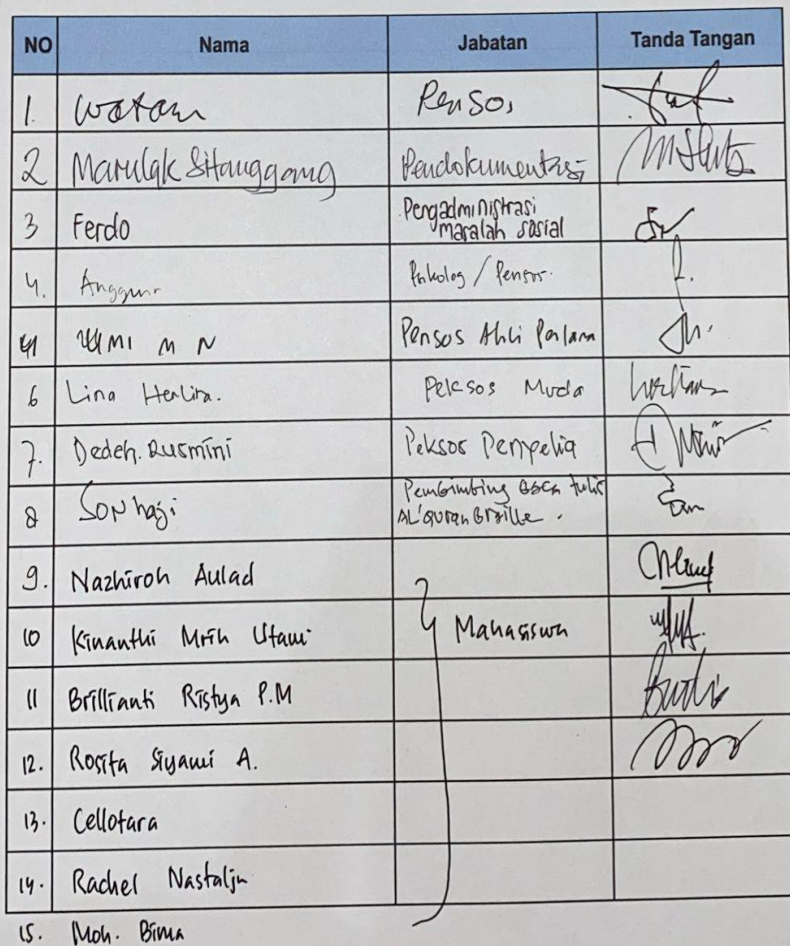 NO Nama Jabatan Tanda Tangan
1. Watam Pensos
2 Marulak Sitanggang Pendokumentasi
3 Ferdo Pengadministrasi
masalah sosial
4. Anggun Psikolog / Pensos.
UMI M N Pensos Ahli Pertama
6 Lina Herlina. Peksos Muda
7. Dedeh. Rusmini Peksos Penyelia
8 SONhaji Pembimbing Baca tulis
AL'QURAN Braille.
9. Nazhiroh Aulad
10 Kinanthi Mrih Utami Mahasiswa
11 Brillianti Ristya P.M
12. Rosita Siyami A.
13. Cellotara
14. Rachel Nastalja
15. Moh. Bima